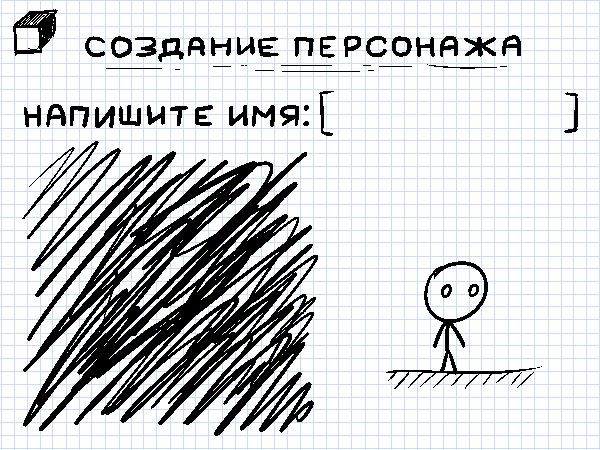 СОЗДАНИЕ ПЕРСОНАЖА
НАПИШИТЕ ИМЯ: [ ]